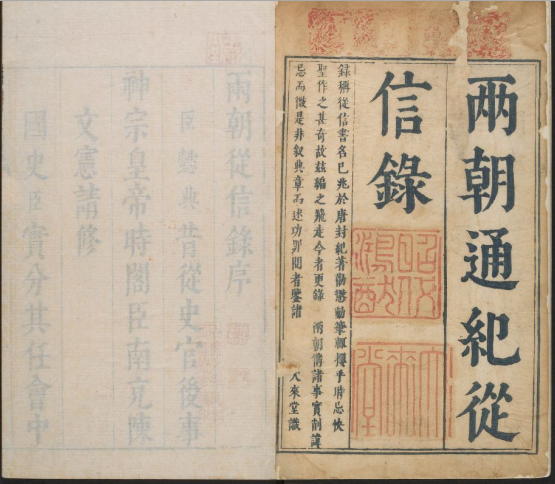 两朝通紀從
信錄
錄稱從信書名已兆於唐封紀著勸懲動筆輒攖乎時忌快
聖作之甚奇故茲編之飛走今者更錄 兩朝傳諸事實削諱
忌而微是非叙典章而述功罪閱者鑒諸 大來堂識
兩朝從信錄序
臣懿典昔從史官後事
神宗皇帝時閣臣南充陳
文憲請修
國史臣實分其任會中